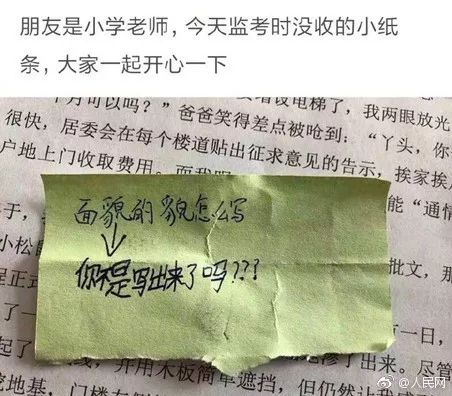 朋友是小学老师，今天监考时没收的小纸
条，大家一起开心一下
个月可以吗？”
增设电梯了，我两眼放光
很快，居委会在每个楼道贴出征求意见的告示，挨家挨
爸爸笑得差点被呛到：“丫头，你
户地上门收取费用。
能“通情
面貌的貌怎么写
你不是写出来了吗???
小松
批文，那
程正式
有一日，
了一
起了
线，并用木板简单遮挡，但仍然让
了出来。尽管
地基，门楼
@人民网